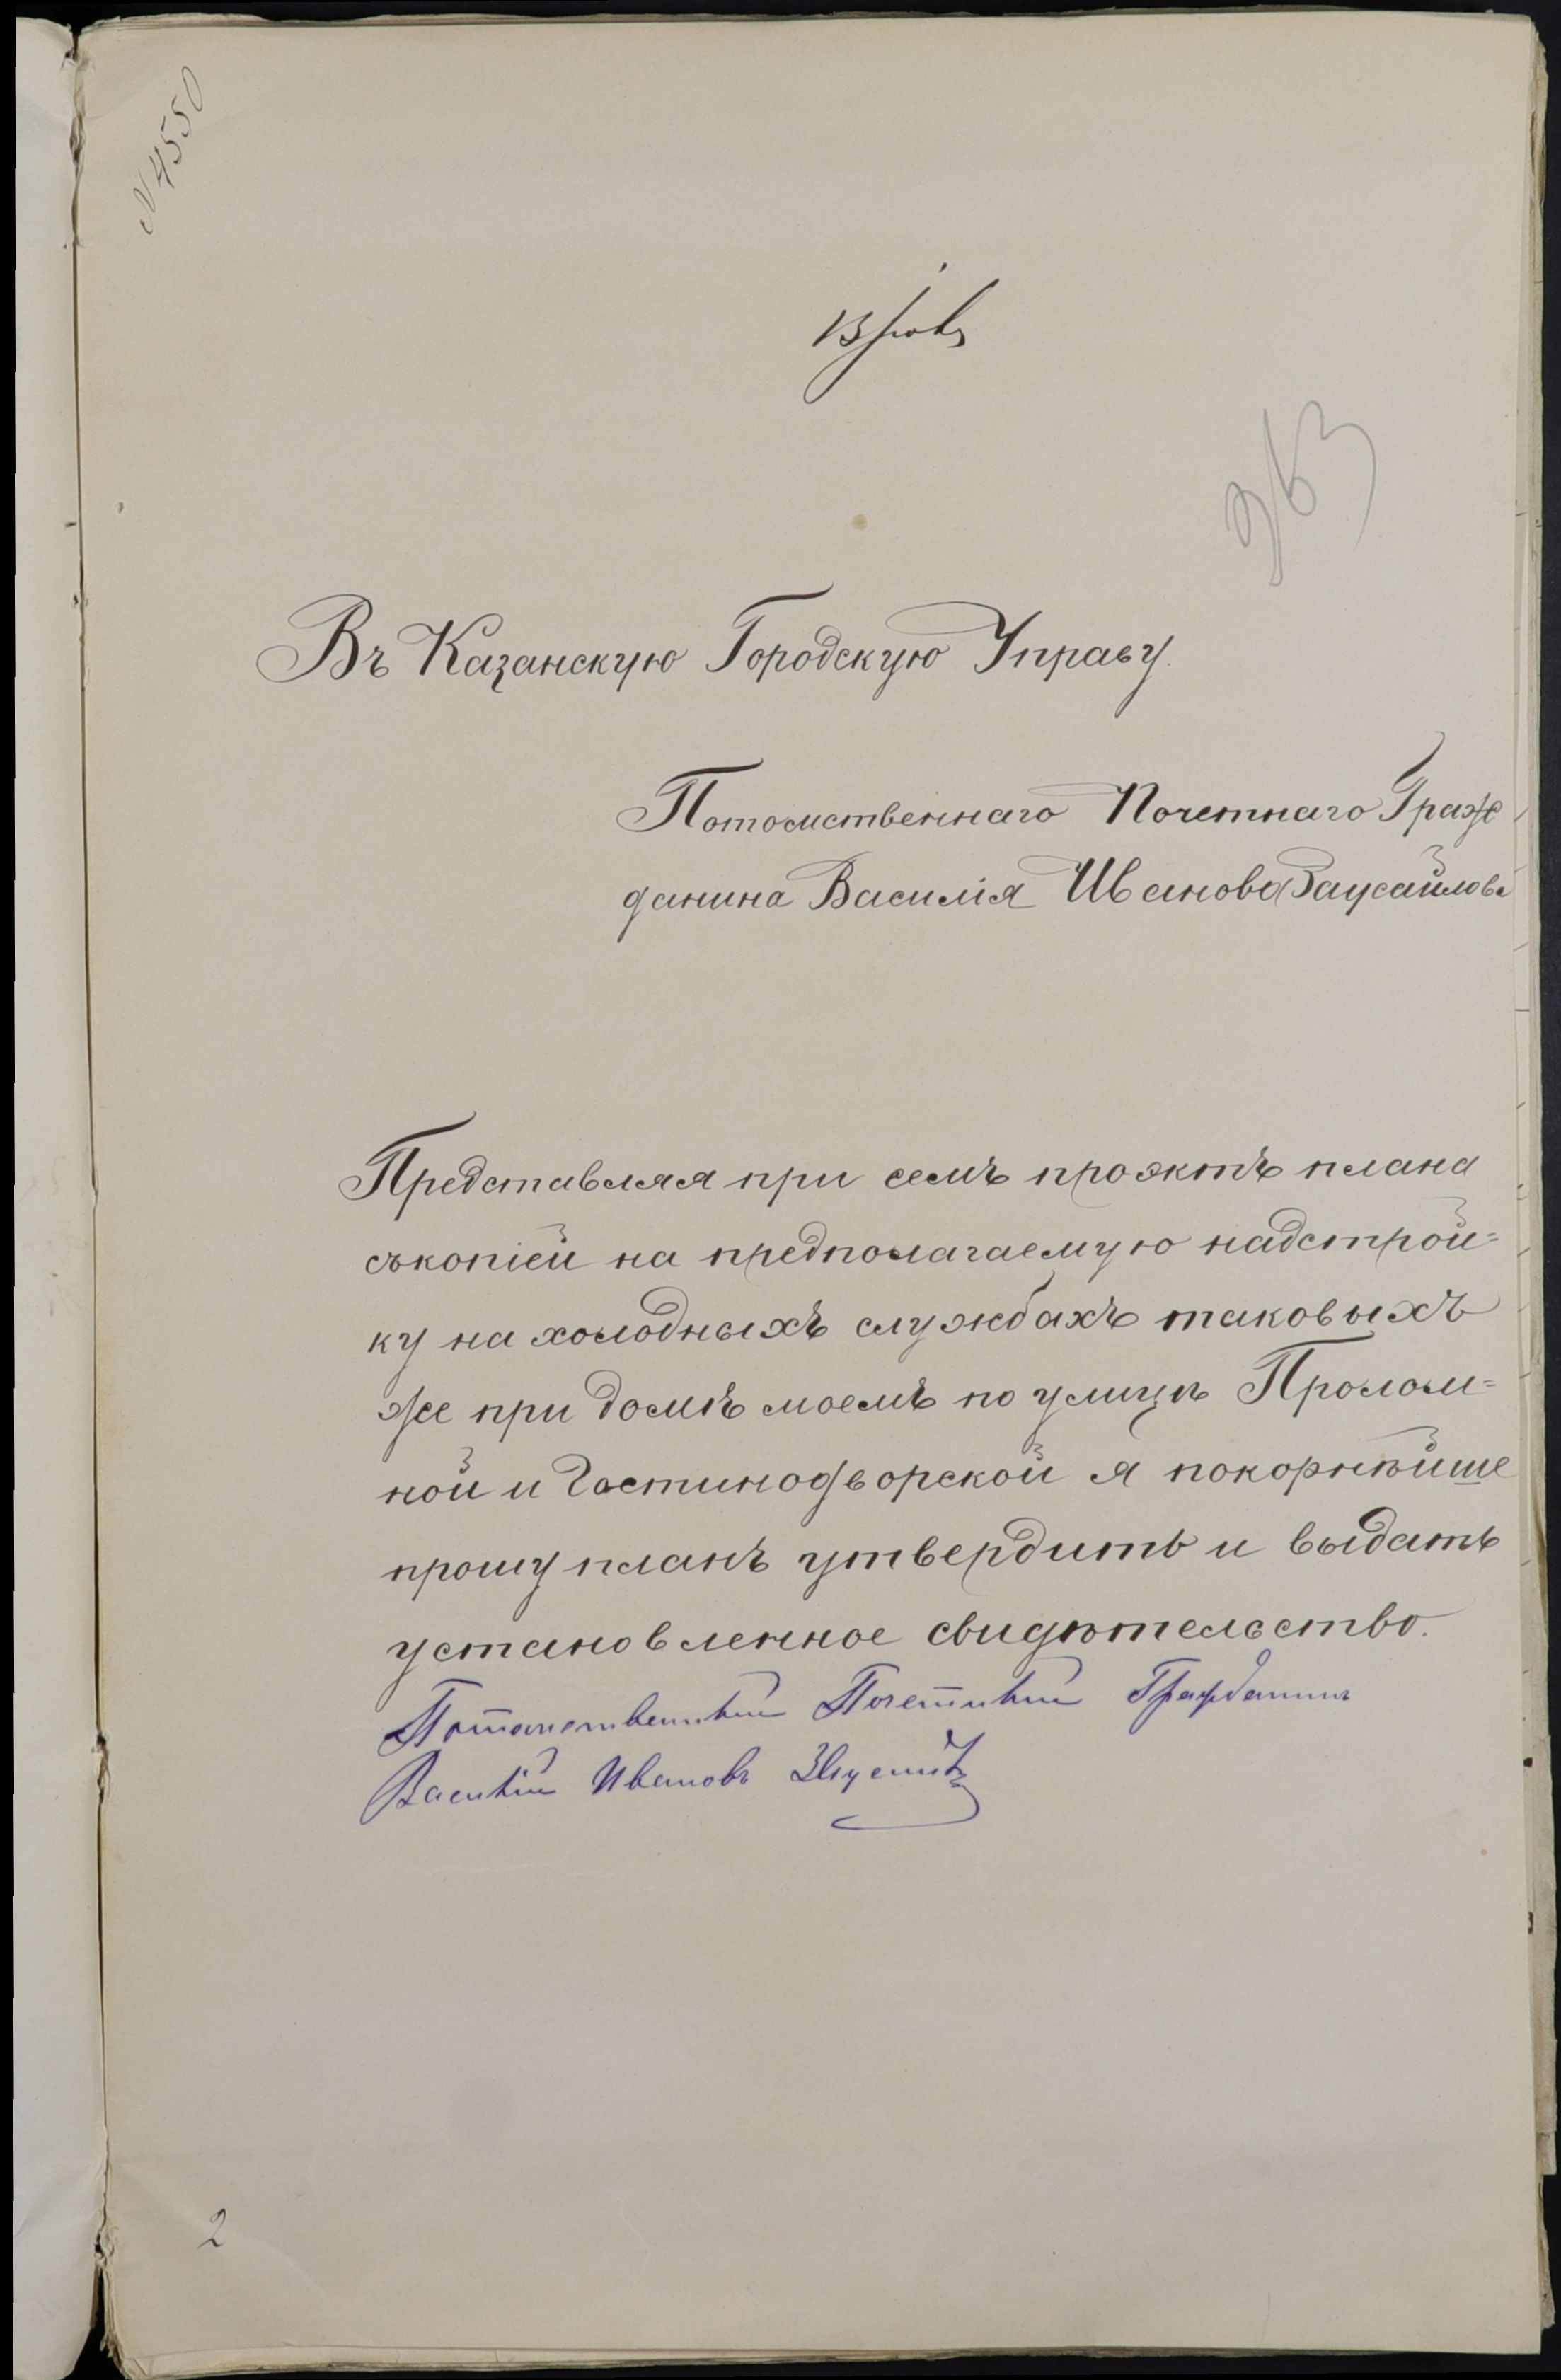 N 4550
363
Въ Казанскую Городскую Управу.
Потомственнаго Почетнаго Граж
данина Василія Иванова Заусайлова
Представляя при семъ проэктъ плана
съ копіей на предполагаемую надстрой=
ку на холодныхъ службахъ таковыхъ
же при домѣ моемъ по улицѣ Пролом=
ной и Гостинодворской я покорнѣйше
прошу планъ утвердить и выдать
установленное свидѣтельство.
Потомственный Почетный Гражданинъ
Василій Ивановъ
2